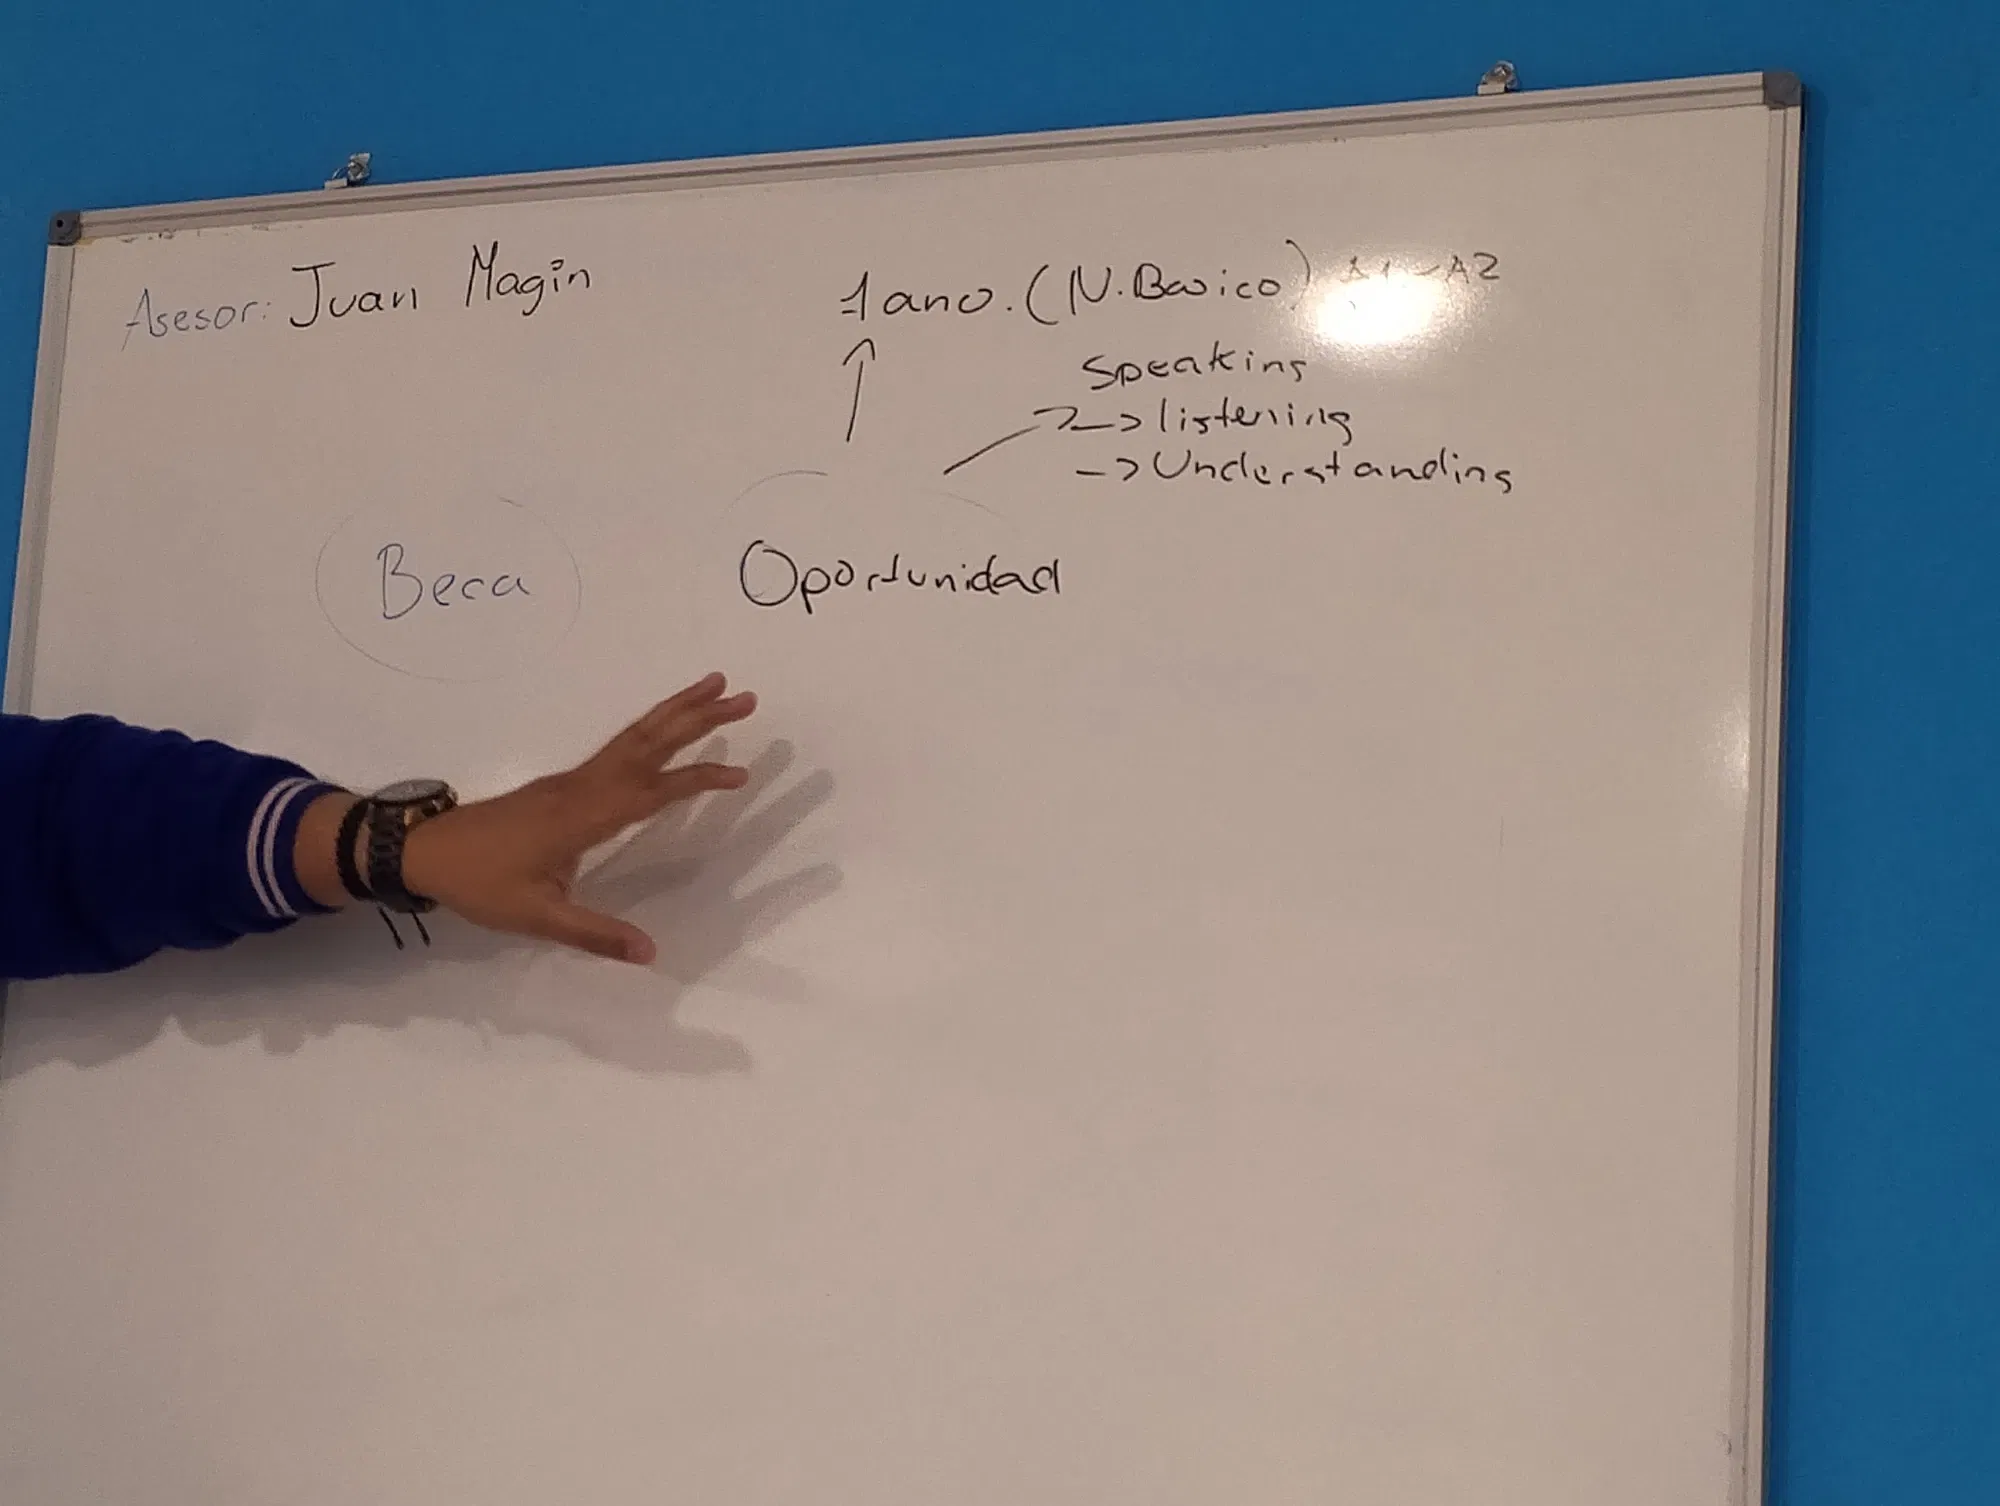 Asesor: Juan Magin
1 ano. (N. Basico) A1-A2
Speaking
-> listening
-> Understanding
Beca
Oportunidad